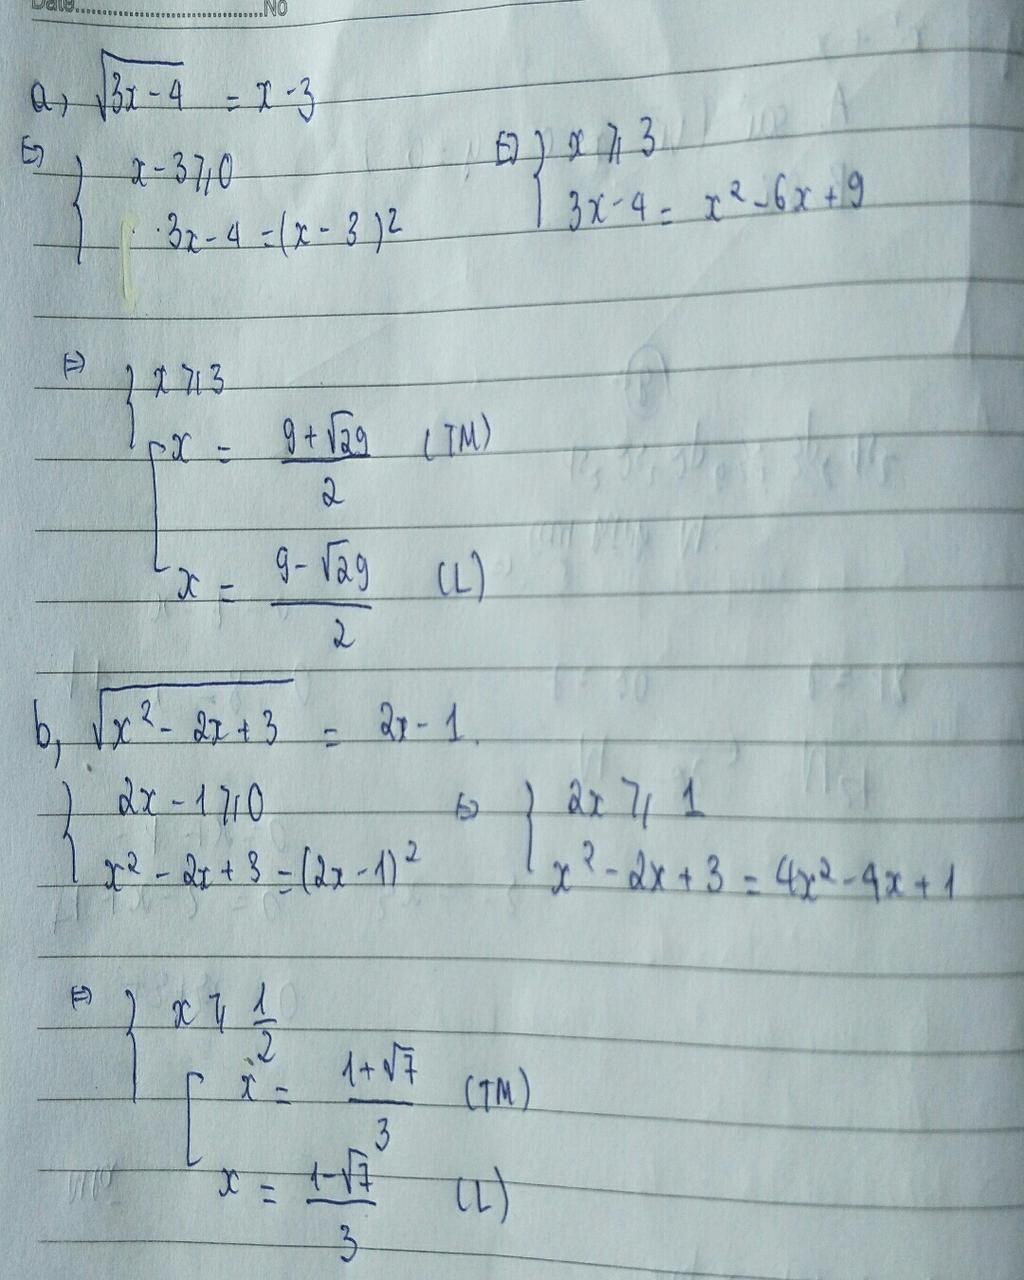 Date..............................No
a, √(3x-4) = x-3
⇔ { x-3 ⩾ 0 ⇔ { x ⩾ 3
3x-4 = (x-3)² 3x-4 = x²-6x+9
⇔ { x ⩾ 3
[ x = (9+√29)/2 (TM)
x = (9-√29)/2 (L)
b, √(x²-2x+3) = 2x-1.
{ 2x-1 ⩾ 0 ⇔ { 2x ⩾ 1
x²-2x+3 = (2x-1)² x²-2x+3 = 4x²-4x+1
⇔ { x ⩾ 1/2
[ x = (1+√7)/3 (TM)
x = (1-√7)/3 (L)